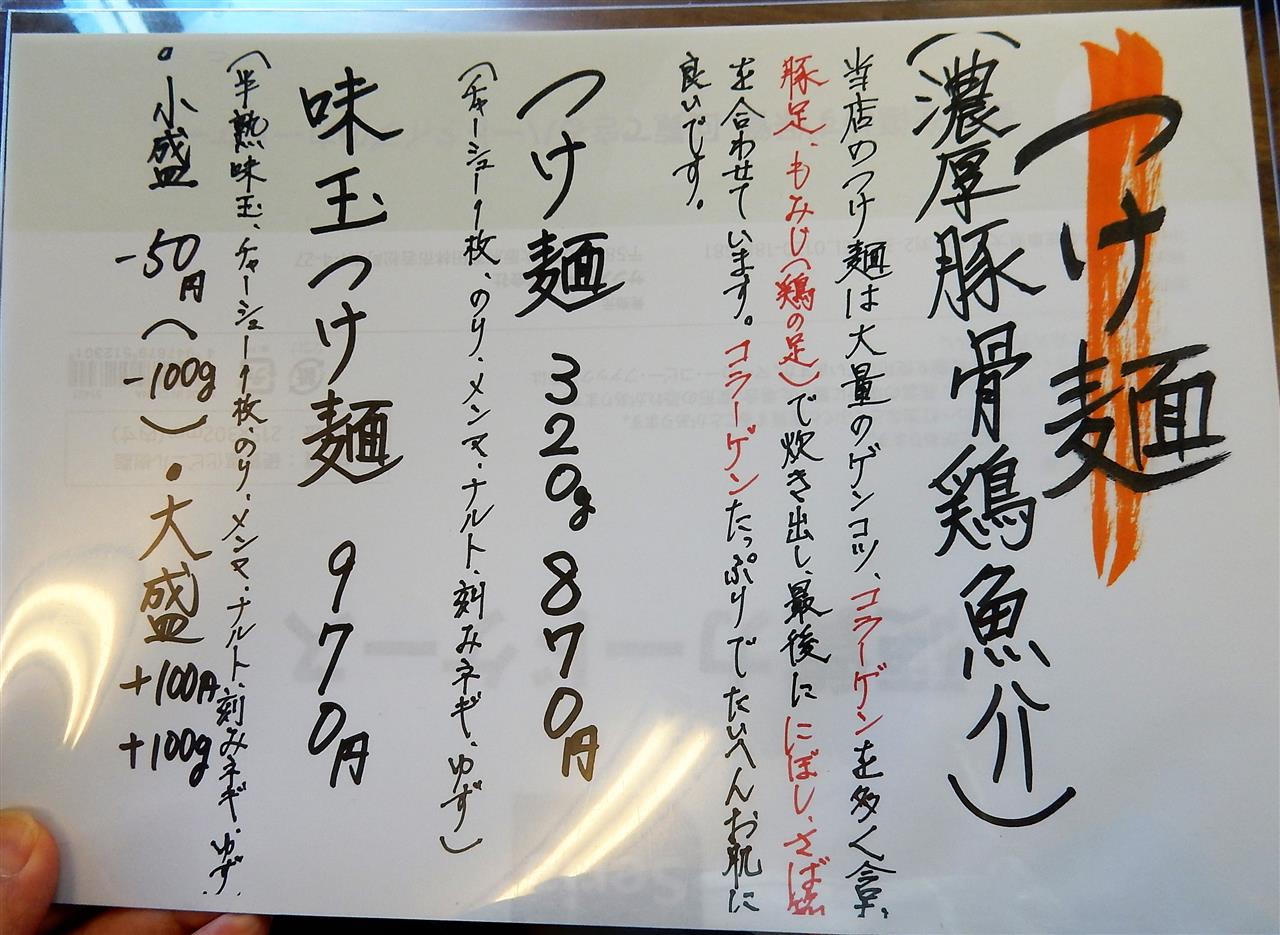 つけ麺
（濃厚豚骨鶏魚介）
当店のつけ麺は大量のゲンコツ、コラーゲンを多く含む、
豚足、もみじ（鶏の足）で炊き出し、最後ににぼし、さば節
を合わせています。コラーゲンたっぷりでたいへんお肌に
良いです。
つけ麺 320g 870円
（チャーシュー1枚、のり、メンマ、ナルト、刻みネギ、ゆず）
味玉つけ麺 970円
（半熟味玉、チャーシュー1枚、のり、メンマ、ナルト、刻みネギ、ゆず
・小盛 -50円（-100g）・大盛 +100円 +100g